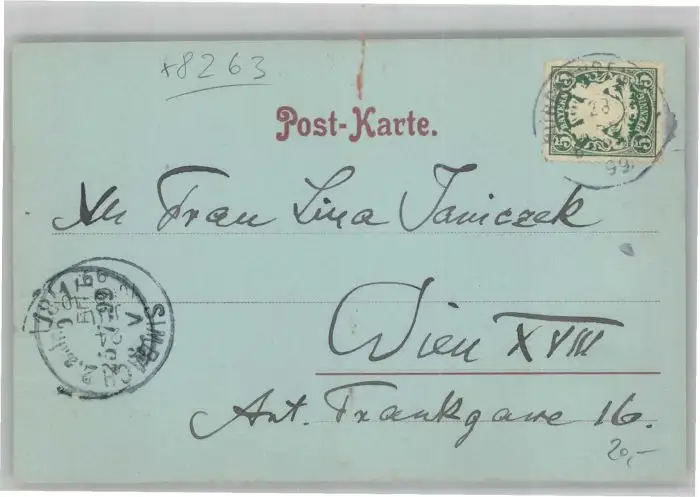 +8263
Post-Karte.
5 BAYERN 5
An Frau Lina Janiczek
Wien XVIII
Ant. Frankgasse 16.
20,-